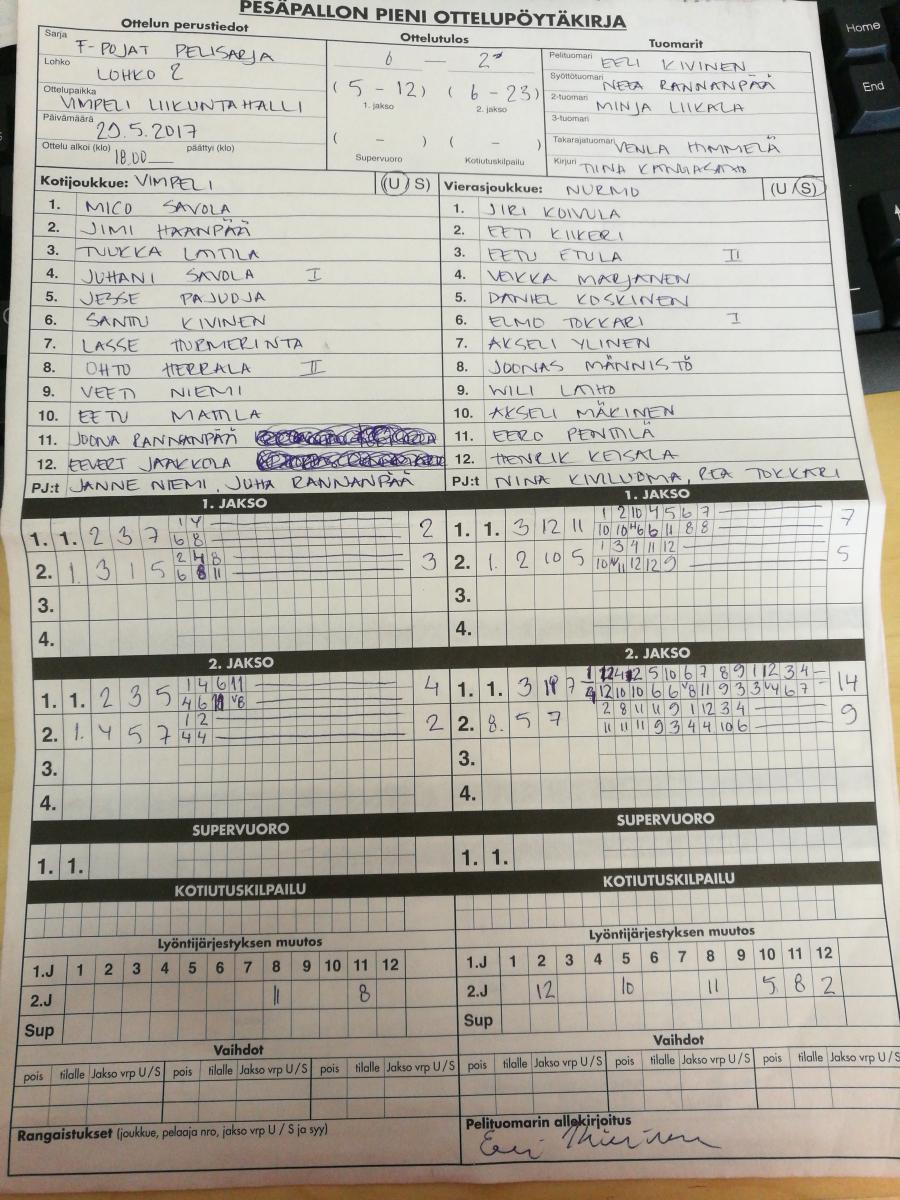 PESÄPALLON PIENI OTTELUPÖYTÄKIRJA
Ottelun perustiedot
Ottelutulos
Tuomarit
Sarja F-POJAT PELISARJA
Lohko LOHKO 2
Ottelupaikka VIMPELI LIIKUNTAHALLI
Päivämäärä 29.5.2017
Ottelu alkoi (klo) 18.00 päättyi (klo)
0 — 2
(5 - 12) (6 - 23)
1. jakso 2. jakso
( - ) ( - )
Supervuoro Kotiutuskilpailu
Pelituomari EELI KIVINEN
Syöttötuomari NEEA RANNANPÄÄ
2-tuomari MINJA LIIKALA
3-tuomari
Takarajatuomari VENLA HIMMELÄ
Kirjuri TIINA
Kotijoukkue: VIMPELI (U S)
1. MICO SAVOLA
2. JIMI HAANPÄÄ
3. TUUKKA LATTILA
4. JUHANI SAVOLA I
5. JESSE PAJUOJA
6. SANTTU KIVINEN
7. LASSE HURMERINTA
8. OHTO HERRALA II
9. VEETI NIEMI
10. EETU MATTILA
11. JOONA RANNANPÄÄ
12. EEVERT JAAKKOLA
PJ:t JANNE NIEMI, JUHA RANNANPÄÄ
Vierasjoukkue: NURMO (U S)
1. JIRI KOIVULA
2. EETI KIIKERI
3. EETU ETULA II
4. VEIKKA MARJANEN
5. DANIEL KOSKINEN
6. ELMO TOKKARI I
7. AKSELI YLINEN
8. JOONAS MÄNNISTÖ
9. WILI LAIHO
10. AKSELI MÄKINEN
11. EERO PENTTILÄ
12. HENRIK KEISALA
PJ:t NINA KIVILUOMA, REA TOKKARI
1. JAKSO
1. 1. 2 3 7 1 4 2
6 8
2. 1. 3 1 5 2 4 8 3
6 8 11
3.
4.
1. JAKSO
1. 1. 3 12 11 1 2 10 4 5 6 7 7
10 10 6 11 8 8
2. 1. 2 10 5 1 3 4 11 12 5
10 11 12 12 9
3.
4.
2. JAKSO
1. 1. 2 3 5 1 4 6 11 4
4 6 11 8
2. 1. 4 5 7 1 2 2
4 4
3.
4.
2. JAKSO
1. 1. 3 7 5 10 6 7 8 9 1 12 3 4 14
12 10 10 6 6 8 11 9 3 3 4 6 7
2. 8. 5 7 2 8 11 11 9 1 12 3 4 9
11 11 11 9 3 4 4 10 6
3.
4.
SUPERVUORO
1. 1.
SUPERVUORO
1. 1.
KOTIUTUSKILPAILU
KOTIUTUSKILPAILU
Lyöntijärjestyksen muutos
1.J 1 2 3 4 5 6 7 8 9 10 11 12
2.J 11 8
Sup
Lyöntijärjestyksen muutos
1.J 1 2 3 4 5 6 7 8 9 10 11 12
2.J 12 10 11 5 8 2
Sup
Vaihdot
pois tilalle Jakso vrp U / S pois tilalle Jakso vrp U / S pois tilalle Jakso vrp U / S
Vaihdot
pois tilalle Jakso vrp U / S pois tilalle Jakso vrp U / S pois tilalle Jakso vrp U / S
Rangaistukset (joukkue, pelaaja nro, jakso vrp U / S ja syy)
Pelituomarin allekirjoitus